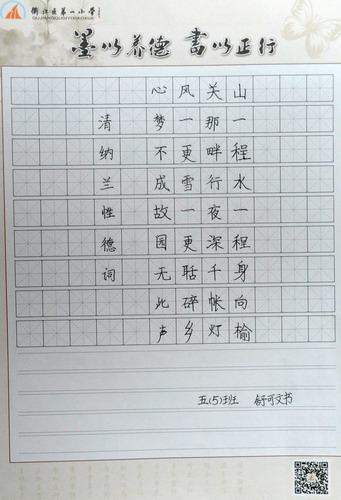 衢江区第一小学
QUJIANGQUDIYIXIAOXUE
墨以养德 書以正行
山一程水一程身向榆
关那畔行夜深千帐灯
风一更雪一更聒碎乡
心梦不成故园无此声
清纳兰性德词
五(5)班 舒可文书